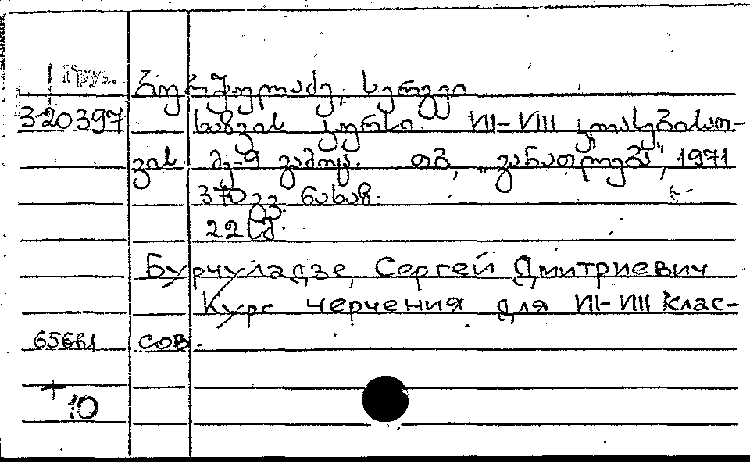 Груз.
ბურჭულაძე, სერგეი
320397 ხაზვის კურსი. VII-VIII კლასებისათ-
ვის. მე-9 გამოც. თბ., „განათლება", 1971
370 გვ. ნახაზ.
22 სმ.
Бурчуладзе, Сергей Дмитриевич
Курс черчения для VII-VIII клас-
сов.
+
10